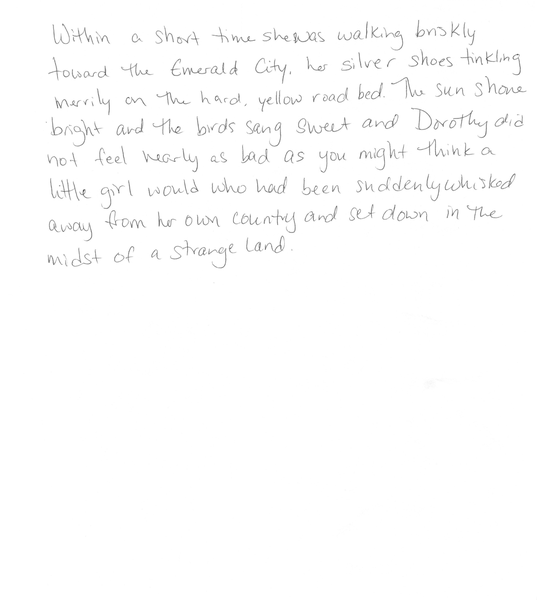 Within a short time she was walking briskly
toward the Emerald City, her silver shoes tinkling
merrily on the hard, yellow road bed. The sun shone
bright and the birds sang sweet and Dorothy did
not feel nearly as bad as you might think a
little girl would who had been suddenly whisked
away from her own country and set down in the
midst of a strange land.